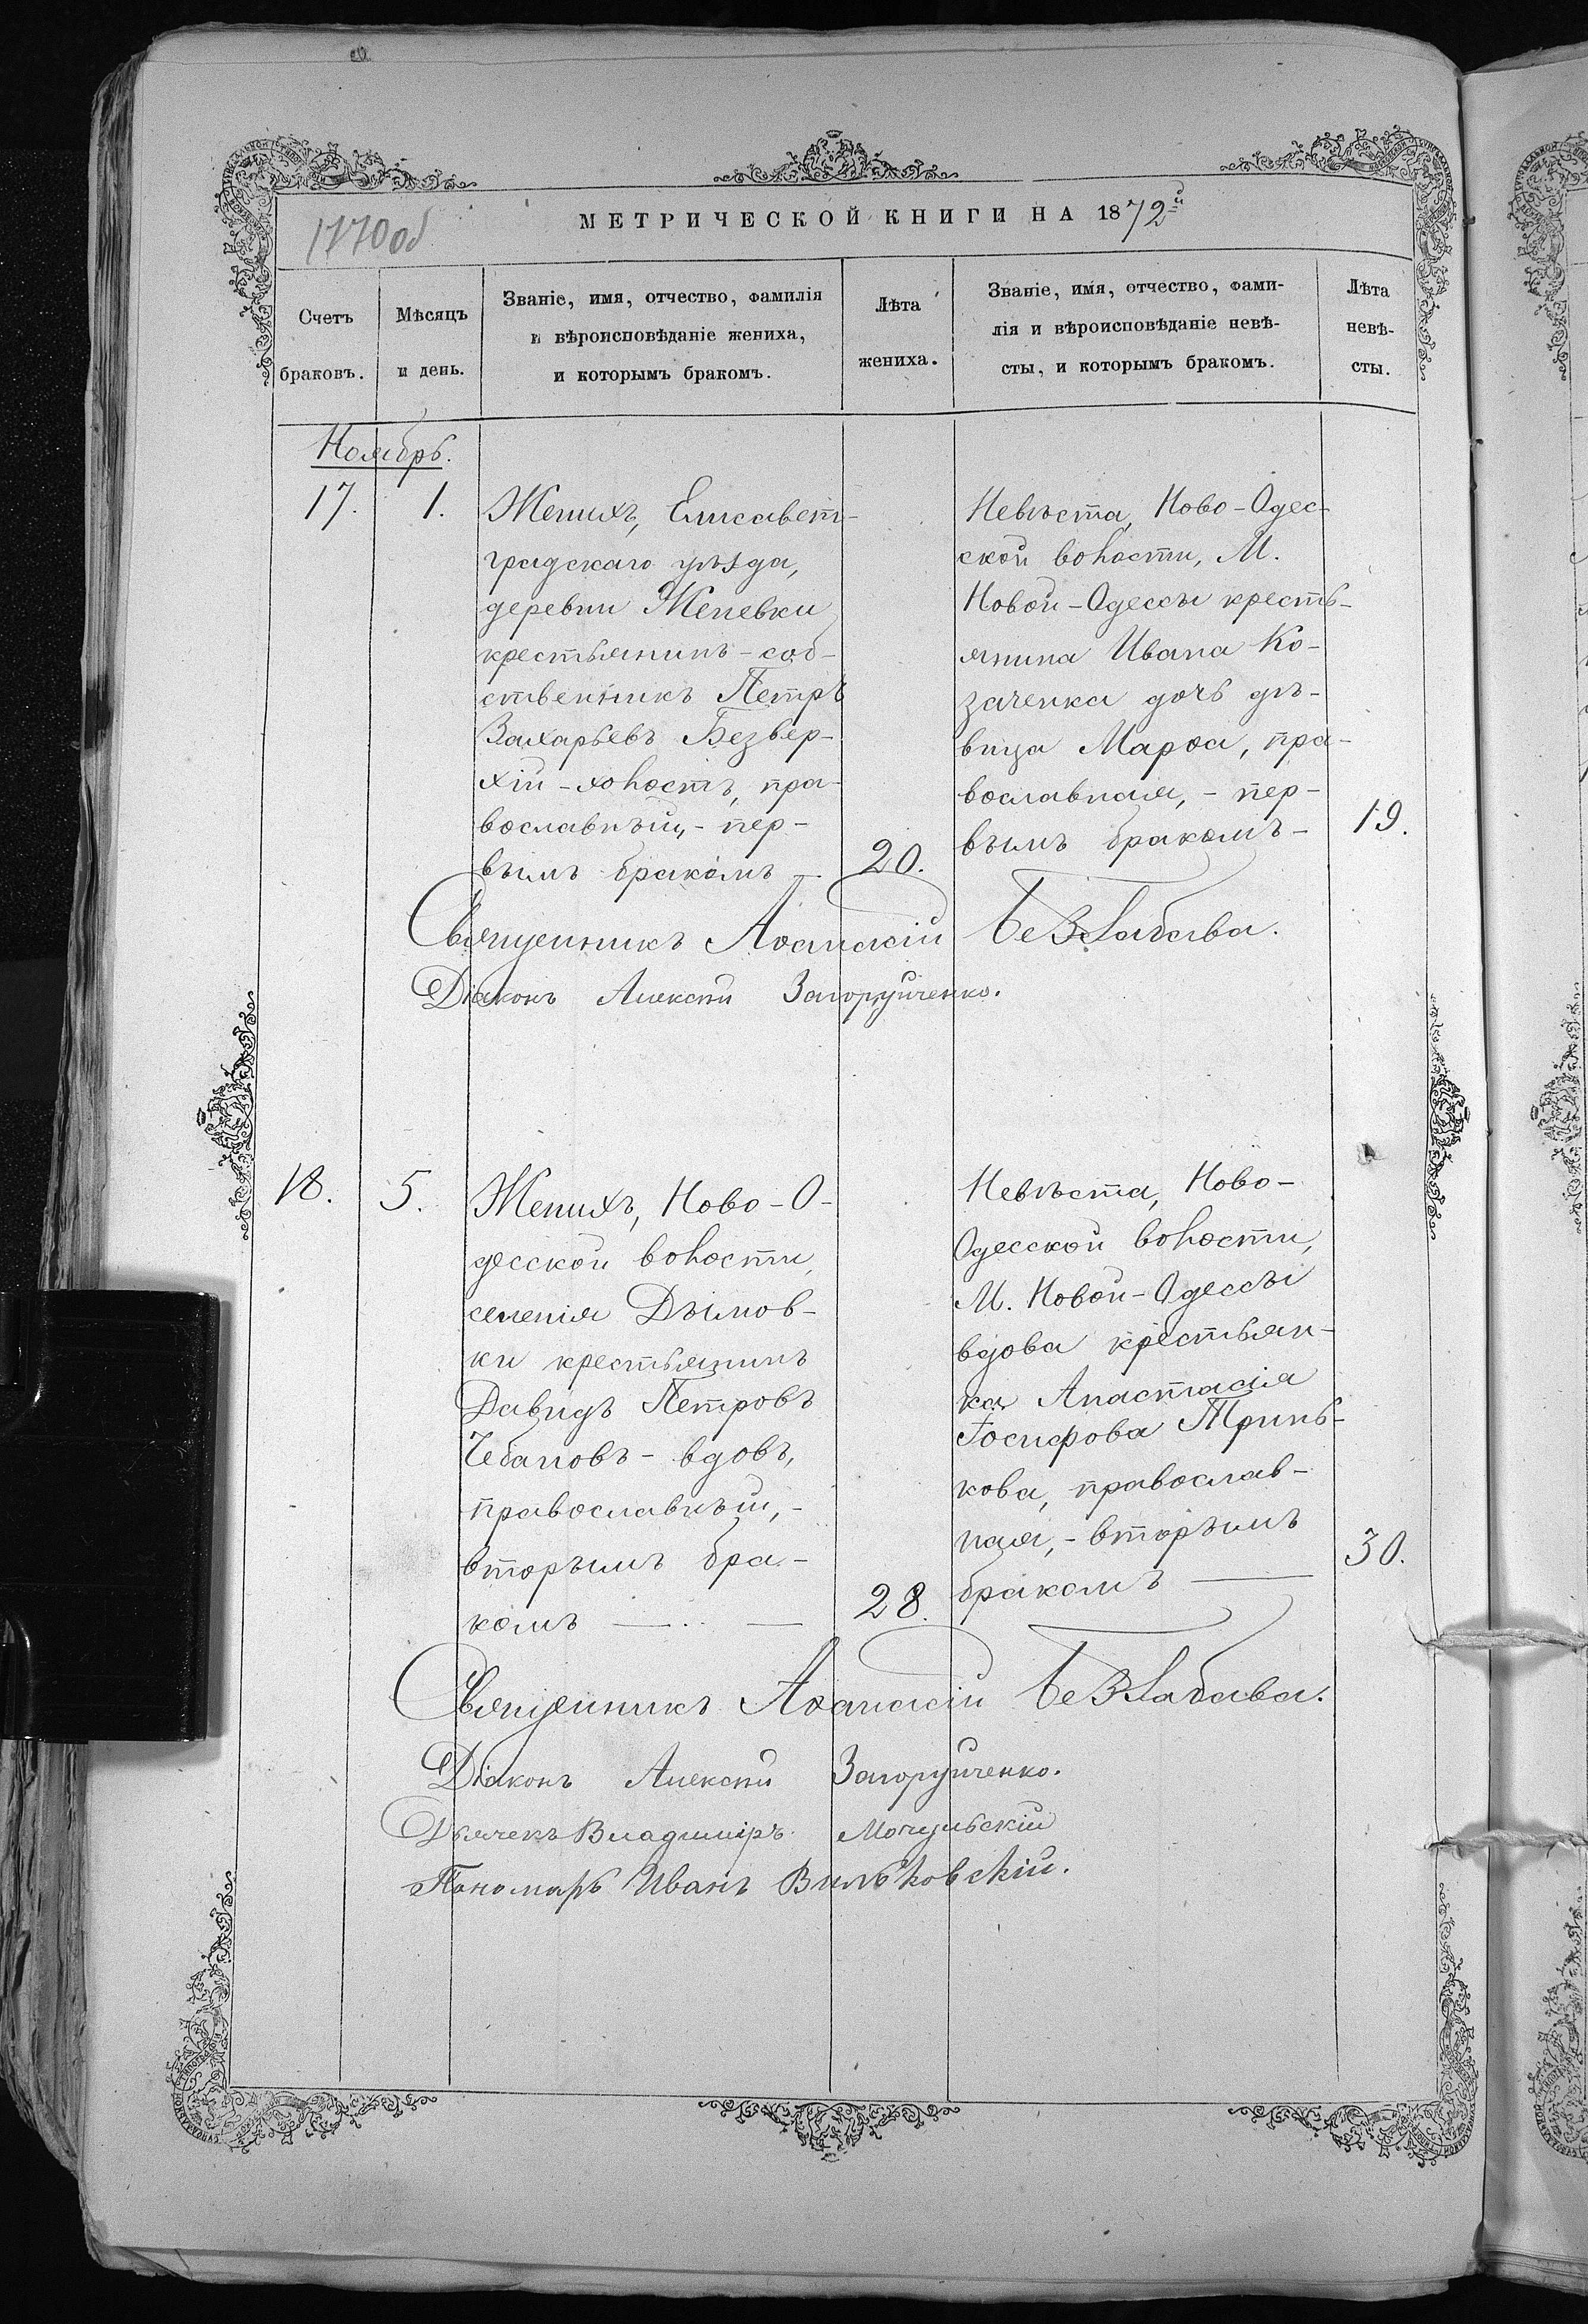 1770 об
МЕТРИЧЕСКОЙ КНИГИ НА 1872й
Счетъ браковъ.
Мѣсяцъ и день.
Званіе, имя, отчество, фамилія
и вѣроисповѣданіе жениха,
и которымъ бракомъ.
Лѣта жениха.
Званіе, имя, отчество, фами-
лія и вѣроисповѣданіе невѣ-
сты, и которымъ бракомъ.
Лѣта невѣ-
сты.
Ноябрь.
17. 1.
Женихъ, Елисавет-
градскаго уѣзда,
деревни Женевки
крестьянинъ-соб-
ственникъ Петръ
Захарьевъ Безвер-
хій-холостъ, пра-
вославный,-пер-
вымъ бракомъ
20.
Невѣста, Ново-Одес-
ской волости, М.
Новой-Одессы кресть-
янина Ивана Ко-
заченка дочь дѣ-
вица Марѳа, пра-
вославная,-пер-
вымъ бракомъ-
19.
Священникъ Аѳанасій Беззабава.
Діаконъ Алексѣй Загоруйченко.
18. 5.
Женихъ, Ново-О-
десской волости,
селенія Дымов-
ки крестьянинъ
Давидъ Петровъ
Чебановъ-вдовъ,
православный,-
вторымъ бра-
комъ
28.
Невѣста, Ново-
Одесской волости,
М. Новой-Одессы
вдова крестьян-
ка Анастасія
Іосифова Тринь-
кова, православ-
ная,-вторымъ
бракомъ
30.
Священникъ Аѳанасій Беззабава.
Діаконъ Алексѣй Загоруйченко.
Дьячекъ Владиміръ Мочульскій
Пономарь Иванъ Вильковскій.